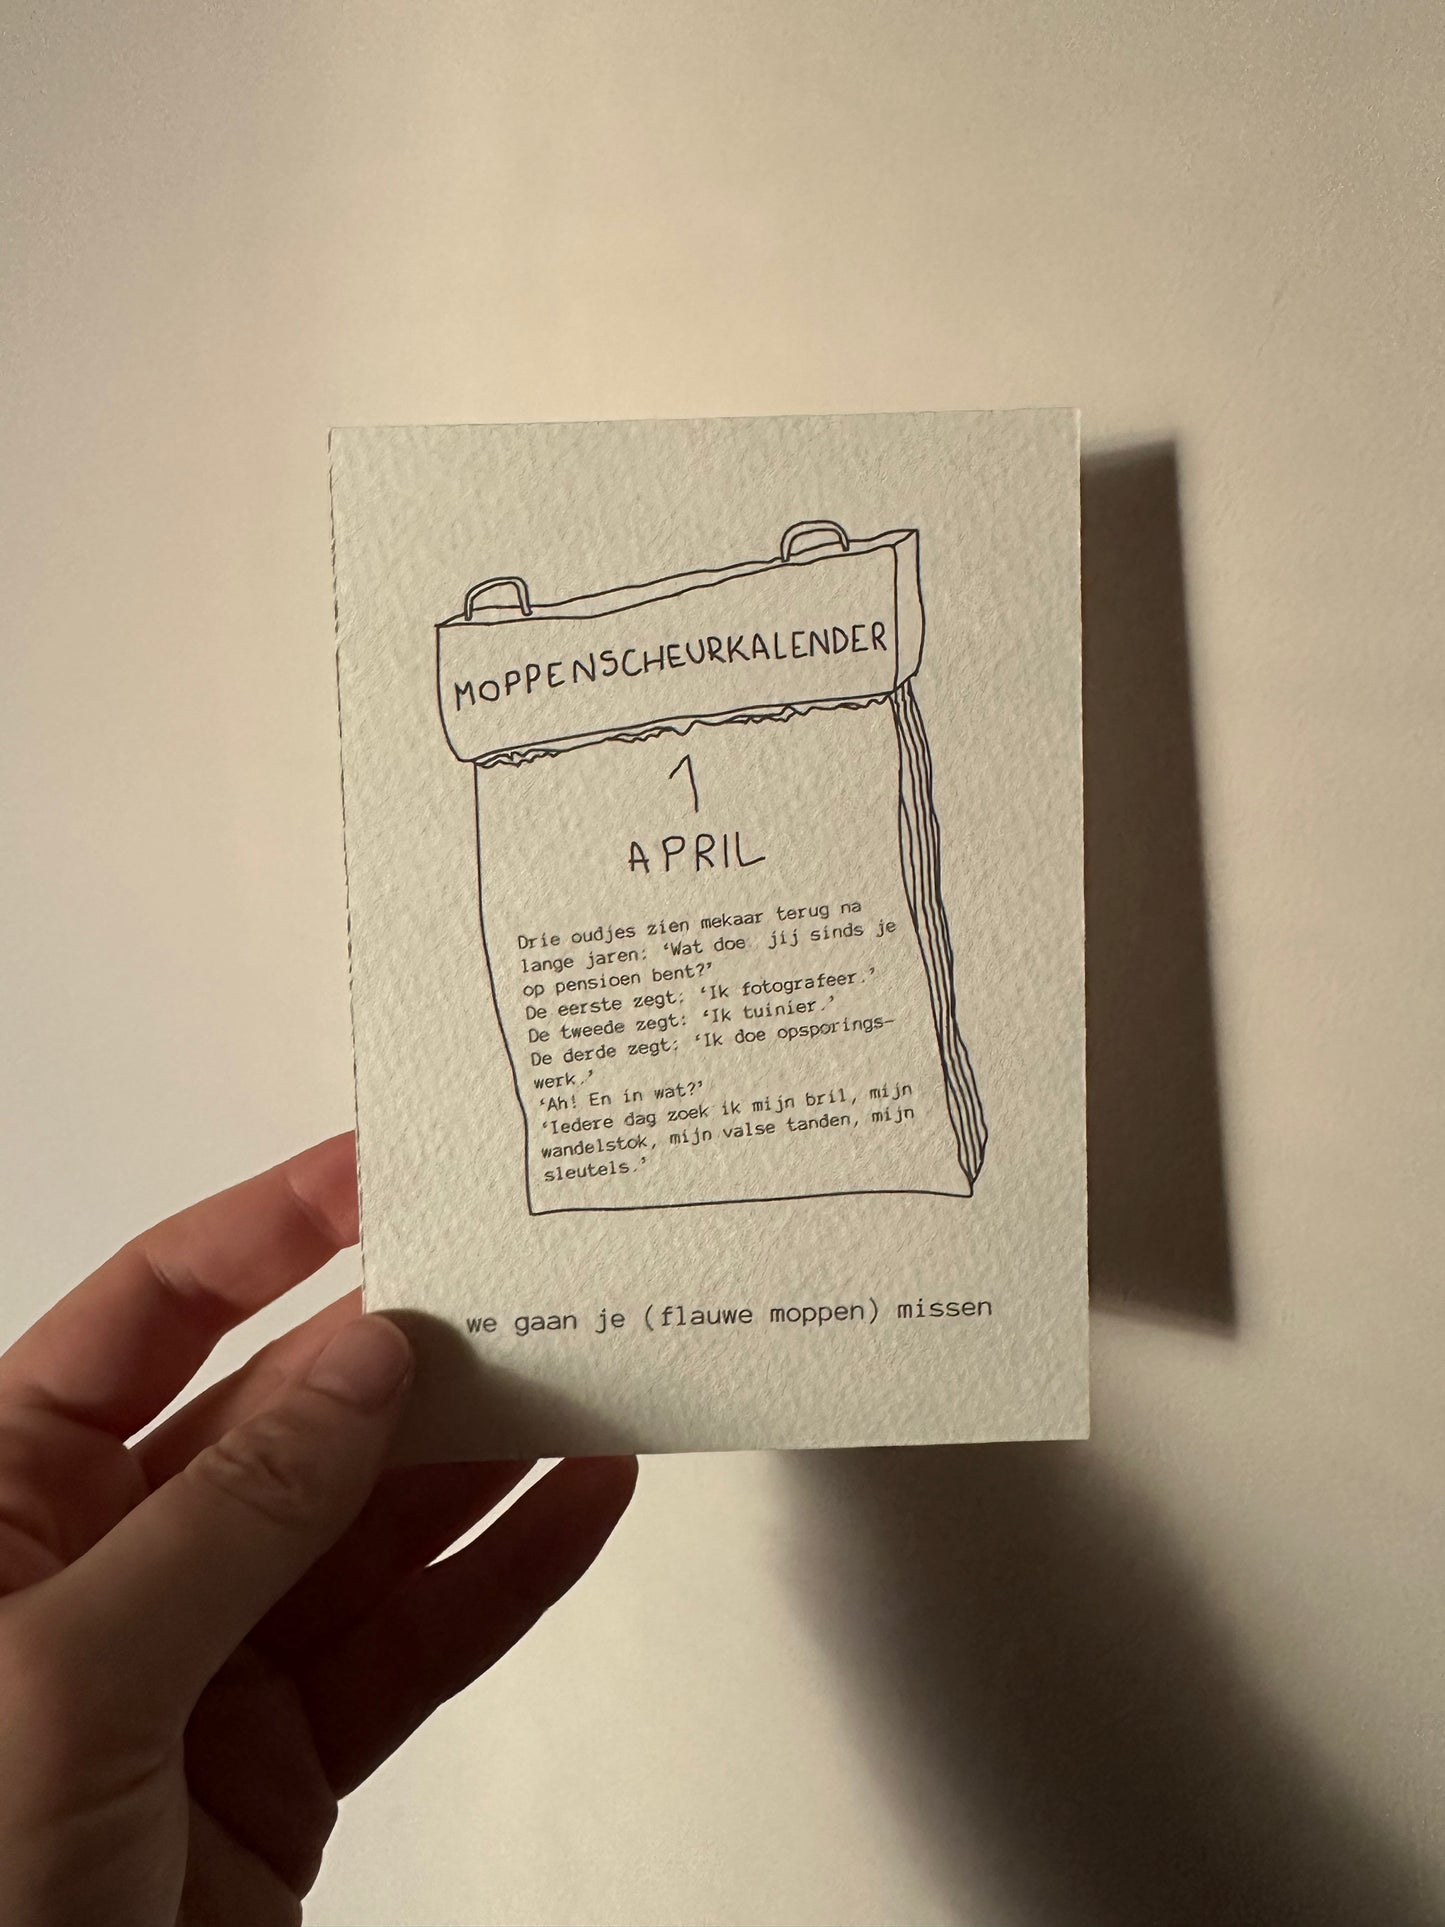 MOPPENSCHEURKALENDER
1
APRIL
Drie oudjes zien mekaar terug na
lange jaren: ‘Wat doe jij sinds je
op pensioen bent?’
De eerste zegt: ‘Ik fotografeer.’
De tweede zegt: ‘Ik tuinier.’
De derde zegt: ‘Ik doe opsporings-
werk.’
‘Ah! En in wat?’
‘Iedere dag zoek ik mijn bril, mijn
wandelstok, mijn valse tanden, mijn
sleutels.’
we gaan je (flauwe moppen) missen